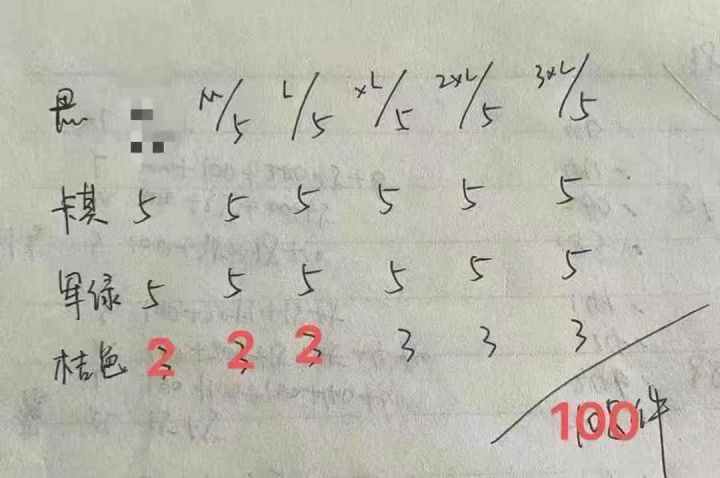 黑 M/5 L/5 XL/5 2XL/5 3XL/5
卡其 5 5 5 5 5 5
军绿 5 5 5 5 5 5
桔色 2 2 2 3 3 3
100件